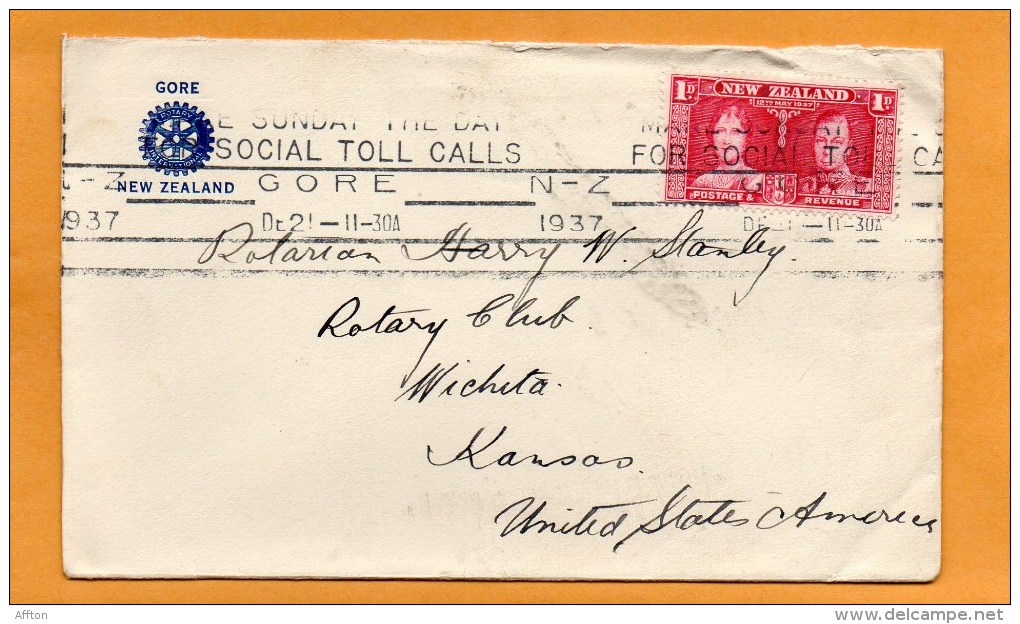 GORE
ROTARY
INTERNATIONAL
NEW ZEALAND
1D NEW ZEALAND 1D
12TH MAY 1937
POSTAGE & REVENUE
E SUNDAY THE DAY
SOCIAL TOLL CALLS
FOR SOCIAL TOLL CA
N-Z GORE N-Z
1937 DE21-11-30A 1937 DE21-11-30A
Rotarian Harry W. Stanley.
Rotary Club.
Wichita.
Kansas.
United States America
Affton
www.delcampe.net